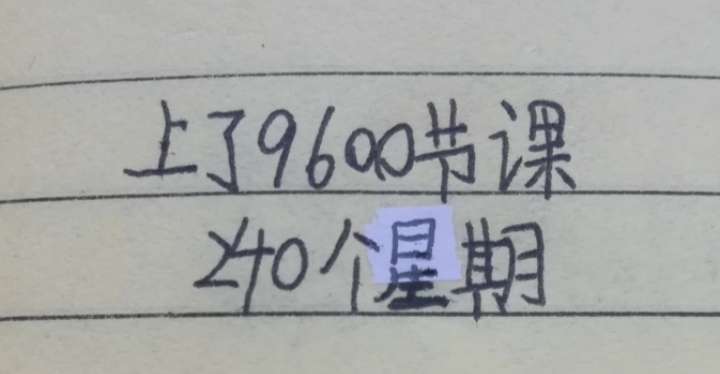 上了9600节课
240个星期